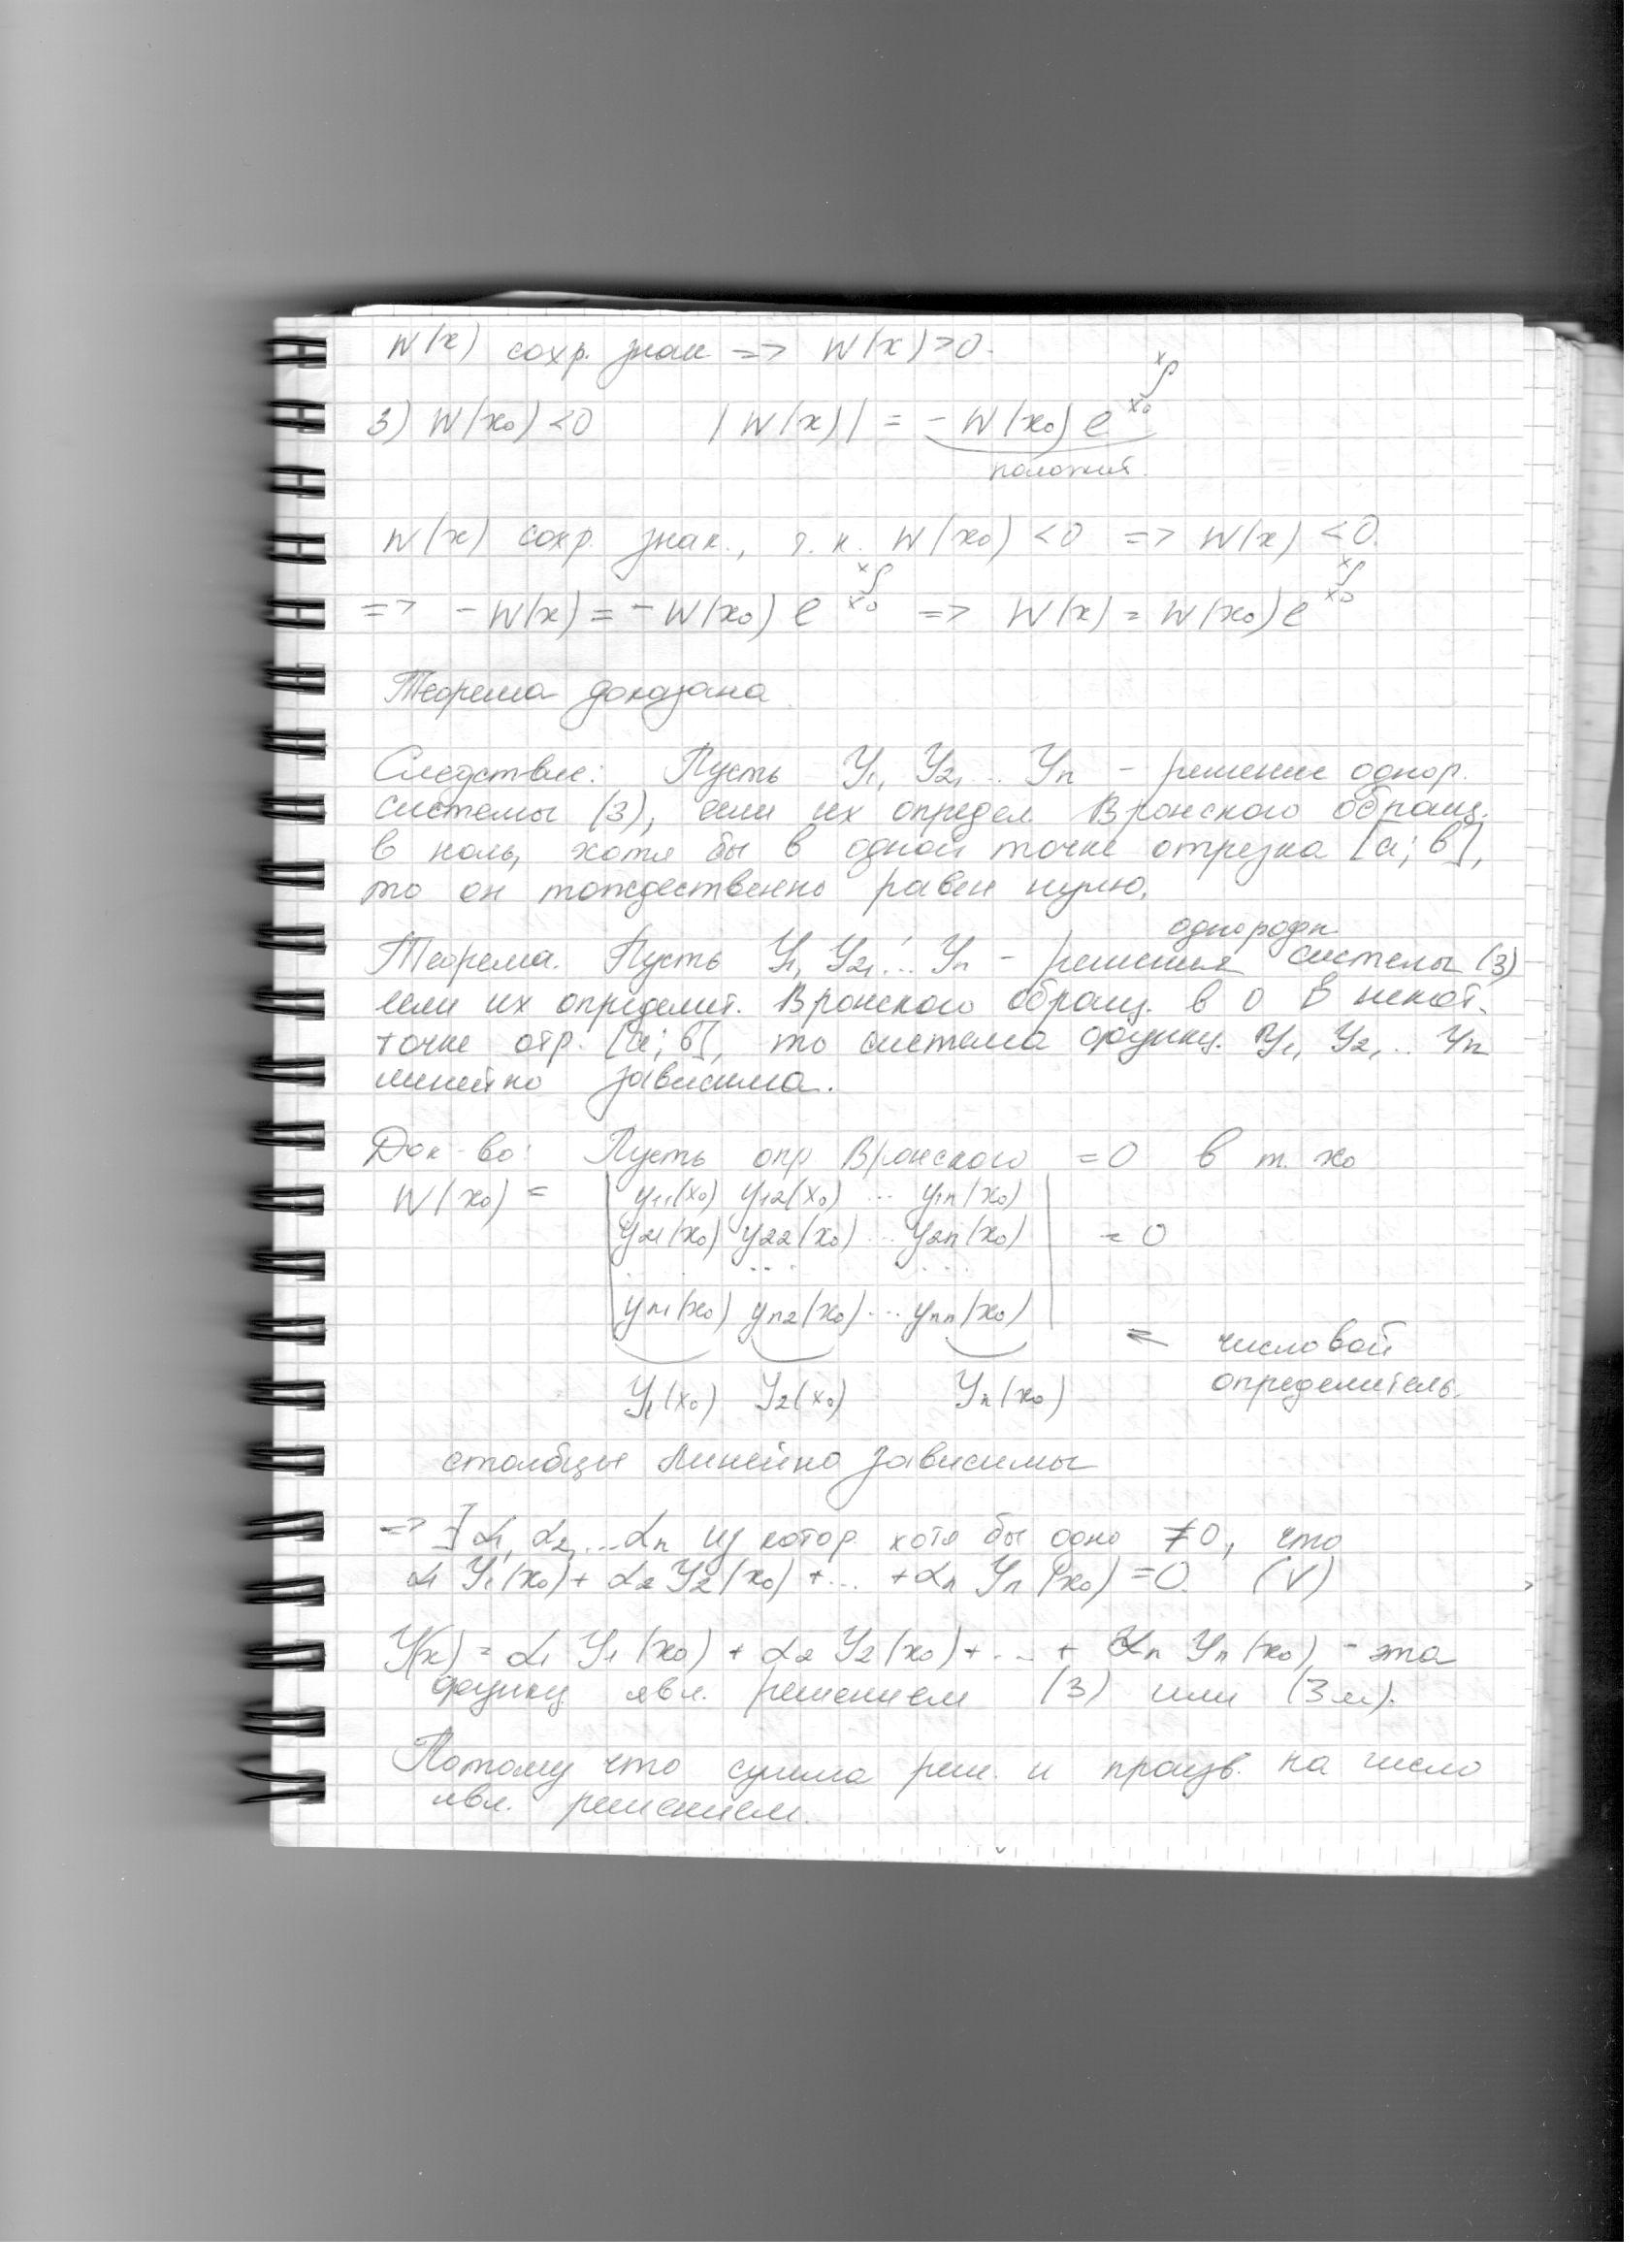 W(x) сохр. знак => W(x)>0.
3) W(x₀)<0 |W(x)| = -W(x₀) e^∫ₓ₀ˣ
положит.
W(x) сохр. знак., т.к. W(x₀) <0 => W(x) <0.
=> -W(x) = -W(x₀) e^∫ₓ₀ˣ => W(x) = W(x₀) e^∫ₓ₀ˣ
Теорема доказана
Следствие: Пусть Y₁, Y₂, .. Yn - решение однор.
системы (3), если их определ Вронского обращ.
в ноль, хотя бы в одной точке отрезка [a; в],
то он тождественно равен нулю.
однородн
Теорема. Пусть Y₁, Y₂, ... Yn - решения системы (3)
если их определит. Вронского обращ. в 0 в некот.
точке отр. [a; в], то система функц. Y₁, Y₂, .. Yn
линейно зависима.
Док-во: Пусть опр Вронского =0 в т. x₀
W(x₀) = | y₁₁(x₀) y₁₂(x₀) ... y₁n(x₀) |
y₂₁(x₀) y₂₂(x₀) ... y₂n(x₀) = 0
. . ... ....
yn₁(x₀) yn₂(x₀) ... ynn(x₀)
<= числовой
Y₁(x₀) Y₂(x₀) Yn(x₀) определитель.
столбцы линейно зависимы
=> ∃ α₁, α₂, ... αn из котор. хотя бы одно ≠0, что
α₁ Y₁(x₀) + α₂ Y₂(x₀) + ... + αn Yn(x₀) =0. (V)
Y(x) = α₁ Y₁(x₀) + α₂ Y₂(x₀) + ... + αn Yn(x₀) - эта
функц явл. решением (3) или (3м).
Потому что сумма реш. и произв. на число
явл. решением.